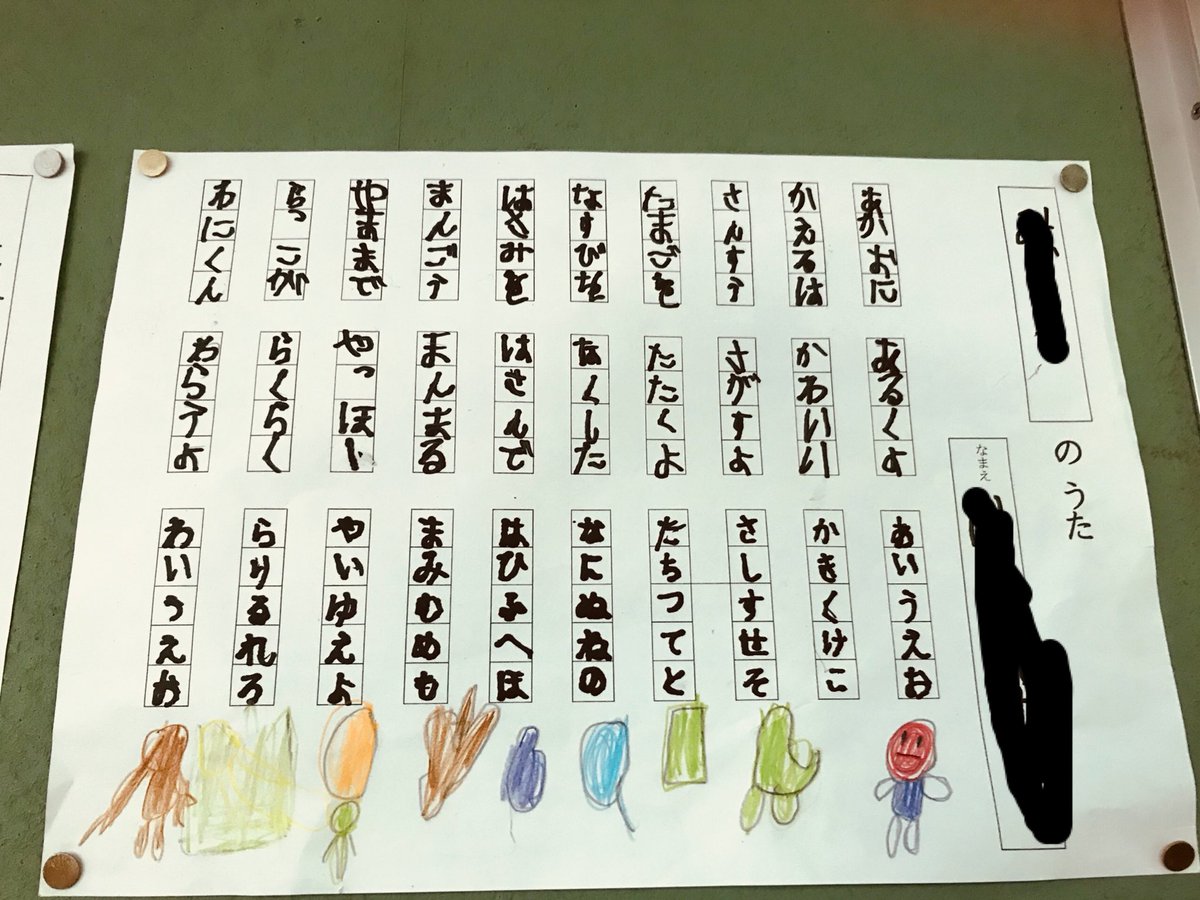 のうた
なまえ
あかおに あるくよ あいうえお
かえるは かわいい かきくけこ
さんすう さがすよ さしすせそ
たまごを たたくよ たちつてと
なすびを なくした なにぬねの
はさみを はさんで はひふへほ
まんごう まんまる まみむめも
やままで やっほー やいゆえよ
らっこが らくらく らりるれろ
わにくん わらうよ わいうえお